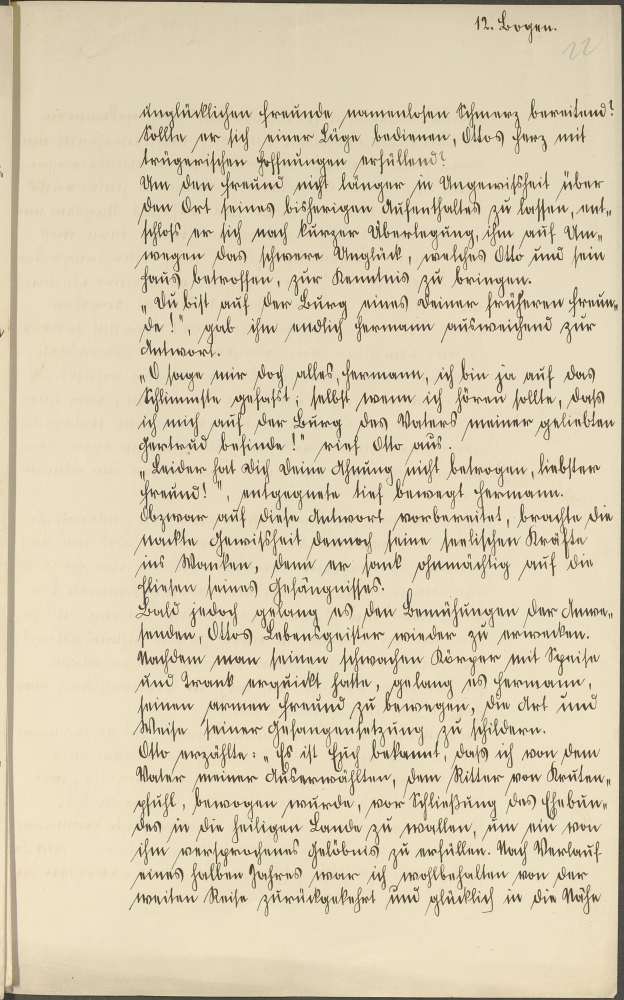 12. Bogen.
22
unglücklichen Freunde namenlosen Schmerz bereitend?
Sollte er sich einer Lüge bedienen, Ottos Herz mit
trügerischen Hoffnungen erfüllend?
Um den Freund nicht länger in Ungewißheit über
den Ort seines bisherigen Aufenthaltes zu lassen, ent„
schloß er sich nach kurzer Überlegung, ihm auf Um„
wegen das schwere Unglück, welches Otto und sein
Haus betroffen, zur Kenntnis zu bringen.
„Du bist auf der Burg eines Deiner früheren Freun„
de!", gab ihm endlich Hermann ausweichend zur
Antwort.
„O sage mir doch alles, Hermann, ich bin ja auf das
Schlimmste gefaßt; selbst wenn ich hören sollte, daß
ich mich auf der Burg des Vaters meiner geliebten
Gertrud befinde!" rief Otto aus.
„Leider hat Dich Deine Ahnung nicht betrogen, liebster
Freund!", entgegnete tief bewegt Hermann.
Obzwar auf diese Antwort vorbereitet, brachte die
nackte Gewißheit dennoch seine seelischen Kräfte
ins Wanken, denn er sank ohnmächtig auf die
Fliesen seines Gefängnisses.
Bald jedoch gelang es den Bemühungen der Anwe„
senden, Ottos Lebensgeister wieder zu erwecken.
Nachdem man seinen schwachen Körper mit Speise
und Trank erquickt hatte, gelang es Hermann,
seinen armen Freund zu bewegen, die Art und
Weise seiner Gefangensetzung zu schildern.
Otto erzählte: „Es ist Euch bekannt, daß ich von dem
Vater meiner Auserwählten, dem Ritter von Kruten„
pfuhl, bewogen wurde, vor Schließung des Ehebun„
des in die heiligen Lande zu wallen, um ein von
ihm versprochenes Gelöbnis zu erfüllen. Nach Verlauf
eines halben Jahres war ich wohlbehalten von der
weiten Reise zurückgekehrt und glücklich in die Nähe